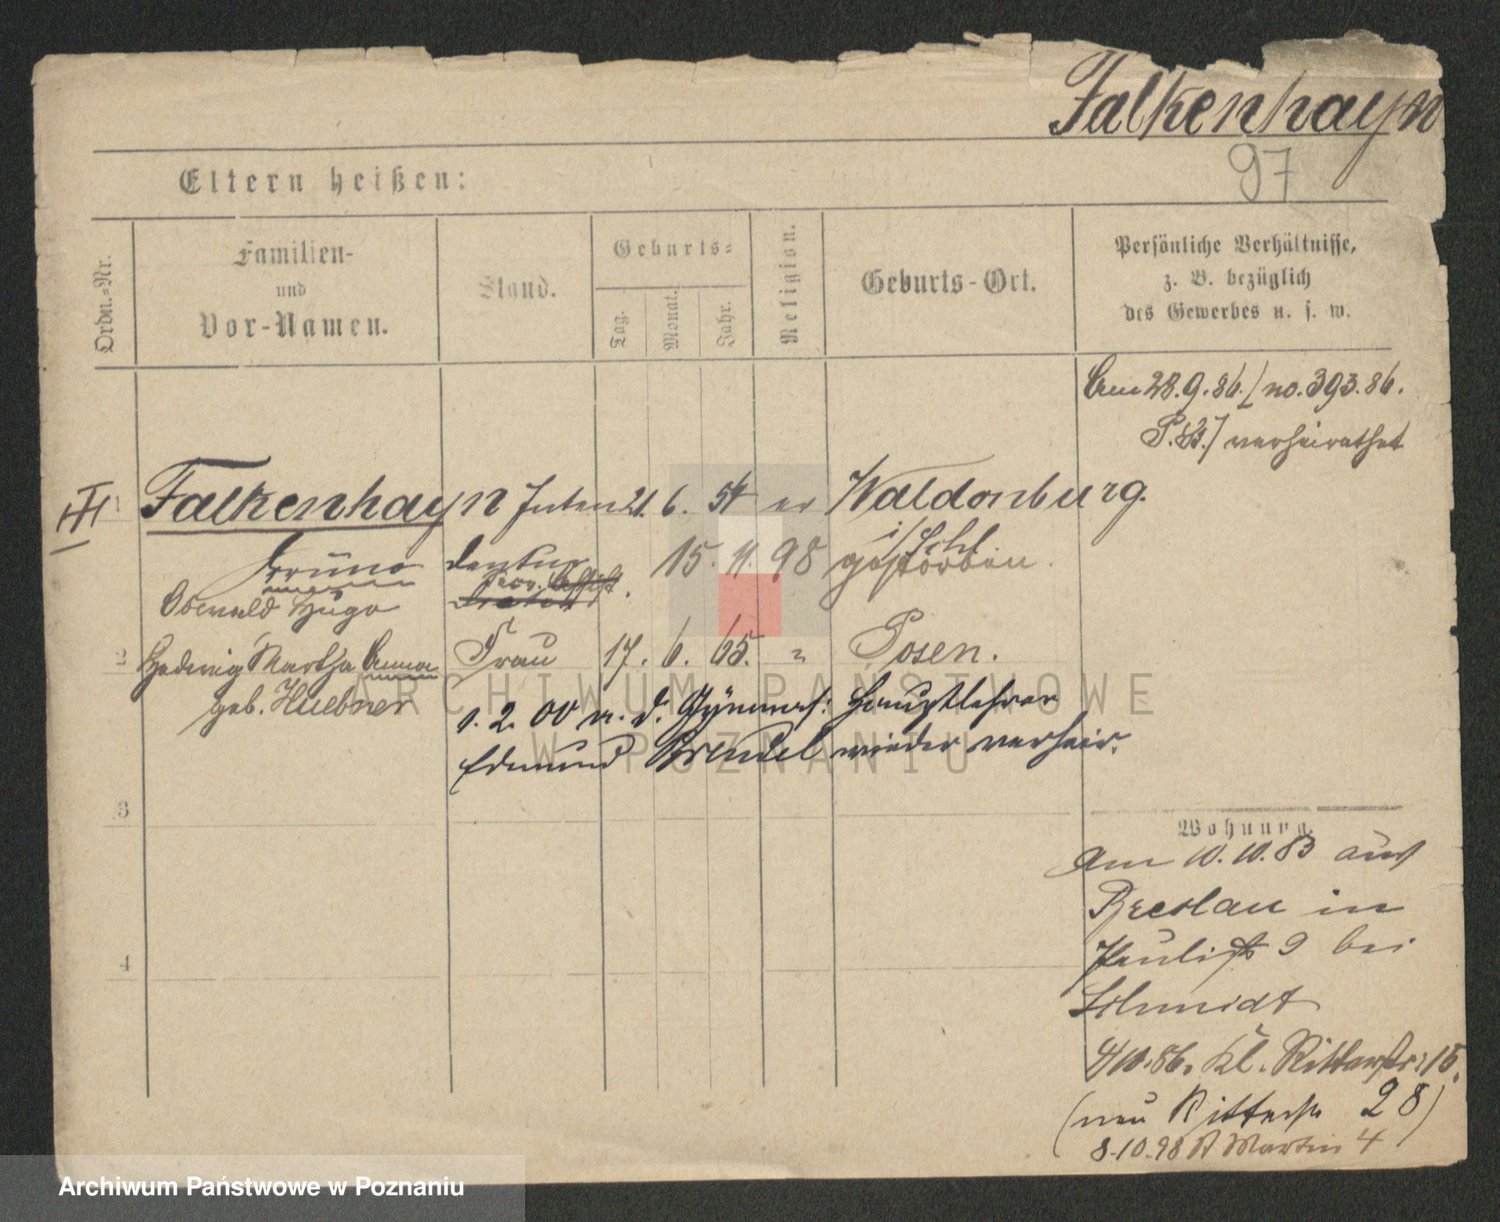 Falkenhayn
97
Eltern heißen:
Ordn.-Nr.
Familien-
und
Vor-Namen.
Stand.
Geburts-
Tag.
Monat.
Jahr.
Religion.
Geburts-Ort.
Persönliche Verhältnisse,
z. B. bezüglich
des Gewerbes u. s. w.
Am 28.9.86. [no. 393.86.
P. St.] verheirathet
III
1 Falkenhayn 21. 6. 54 ev Waldenburg.
i/Schl
Bruno
15. 11. 98 gestorben.
Oswald Hugo
2 Hedwig Martha Anna Frau 17. 6. 65. " Posen.
geb. Huebner
1. 2. 00 m. d. Gymnas: Hauptlehrer
Edmund Brendel wieder verheir.
3
4
Wohnung.
Am 10.10.83 aus
Breslau in
Paulist 9 bei
Schmidt
4/10.86. Kl. Ritterstr: 15.
(neu Ritterstr 28)
8.10.98 St Martin 4
ARCHIWUM PAŃSTWOWE
W POZNANIU
Archiwum Państwowe w Poznaniu